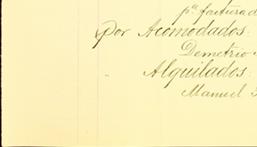 pª factura d
por Acomodados.
Demetrio
Alquilados.
Manuel